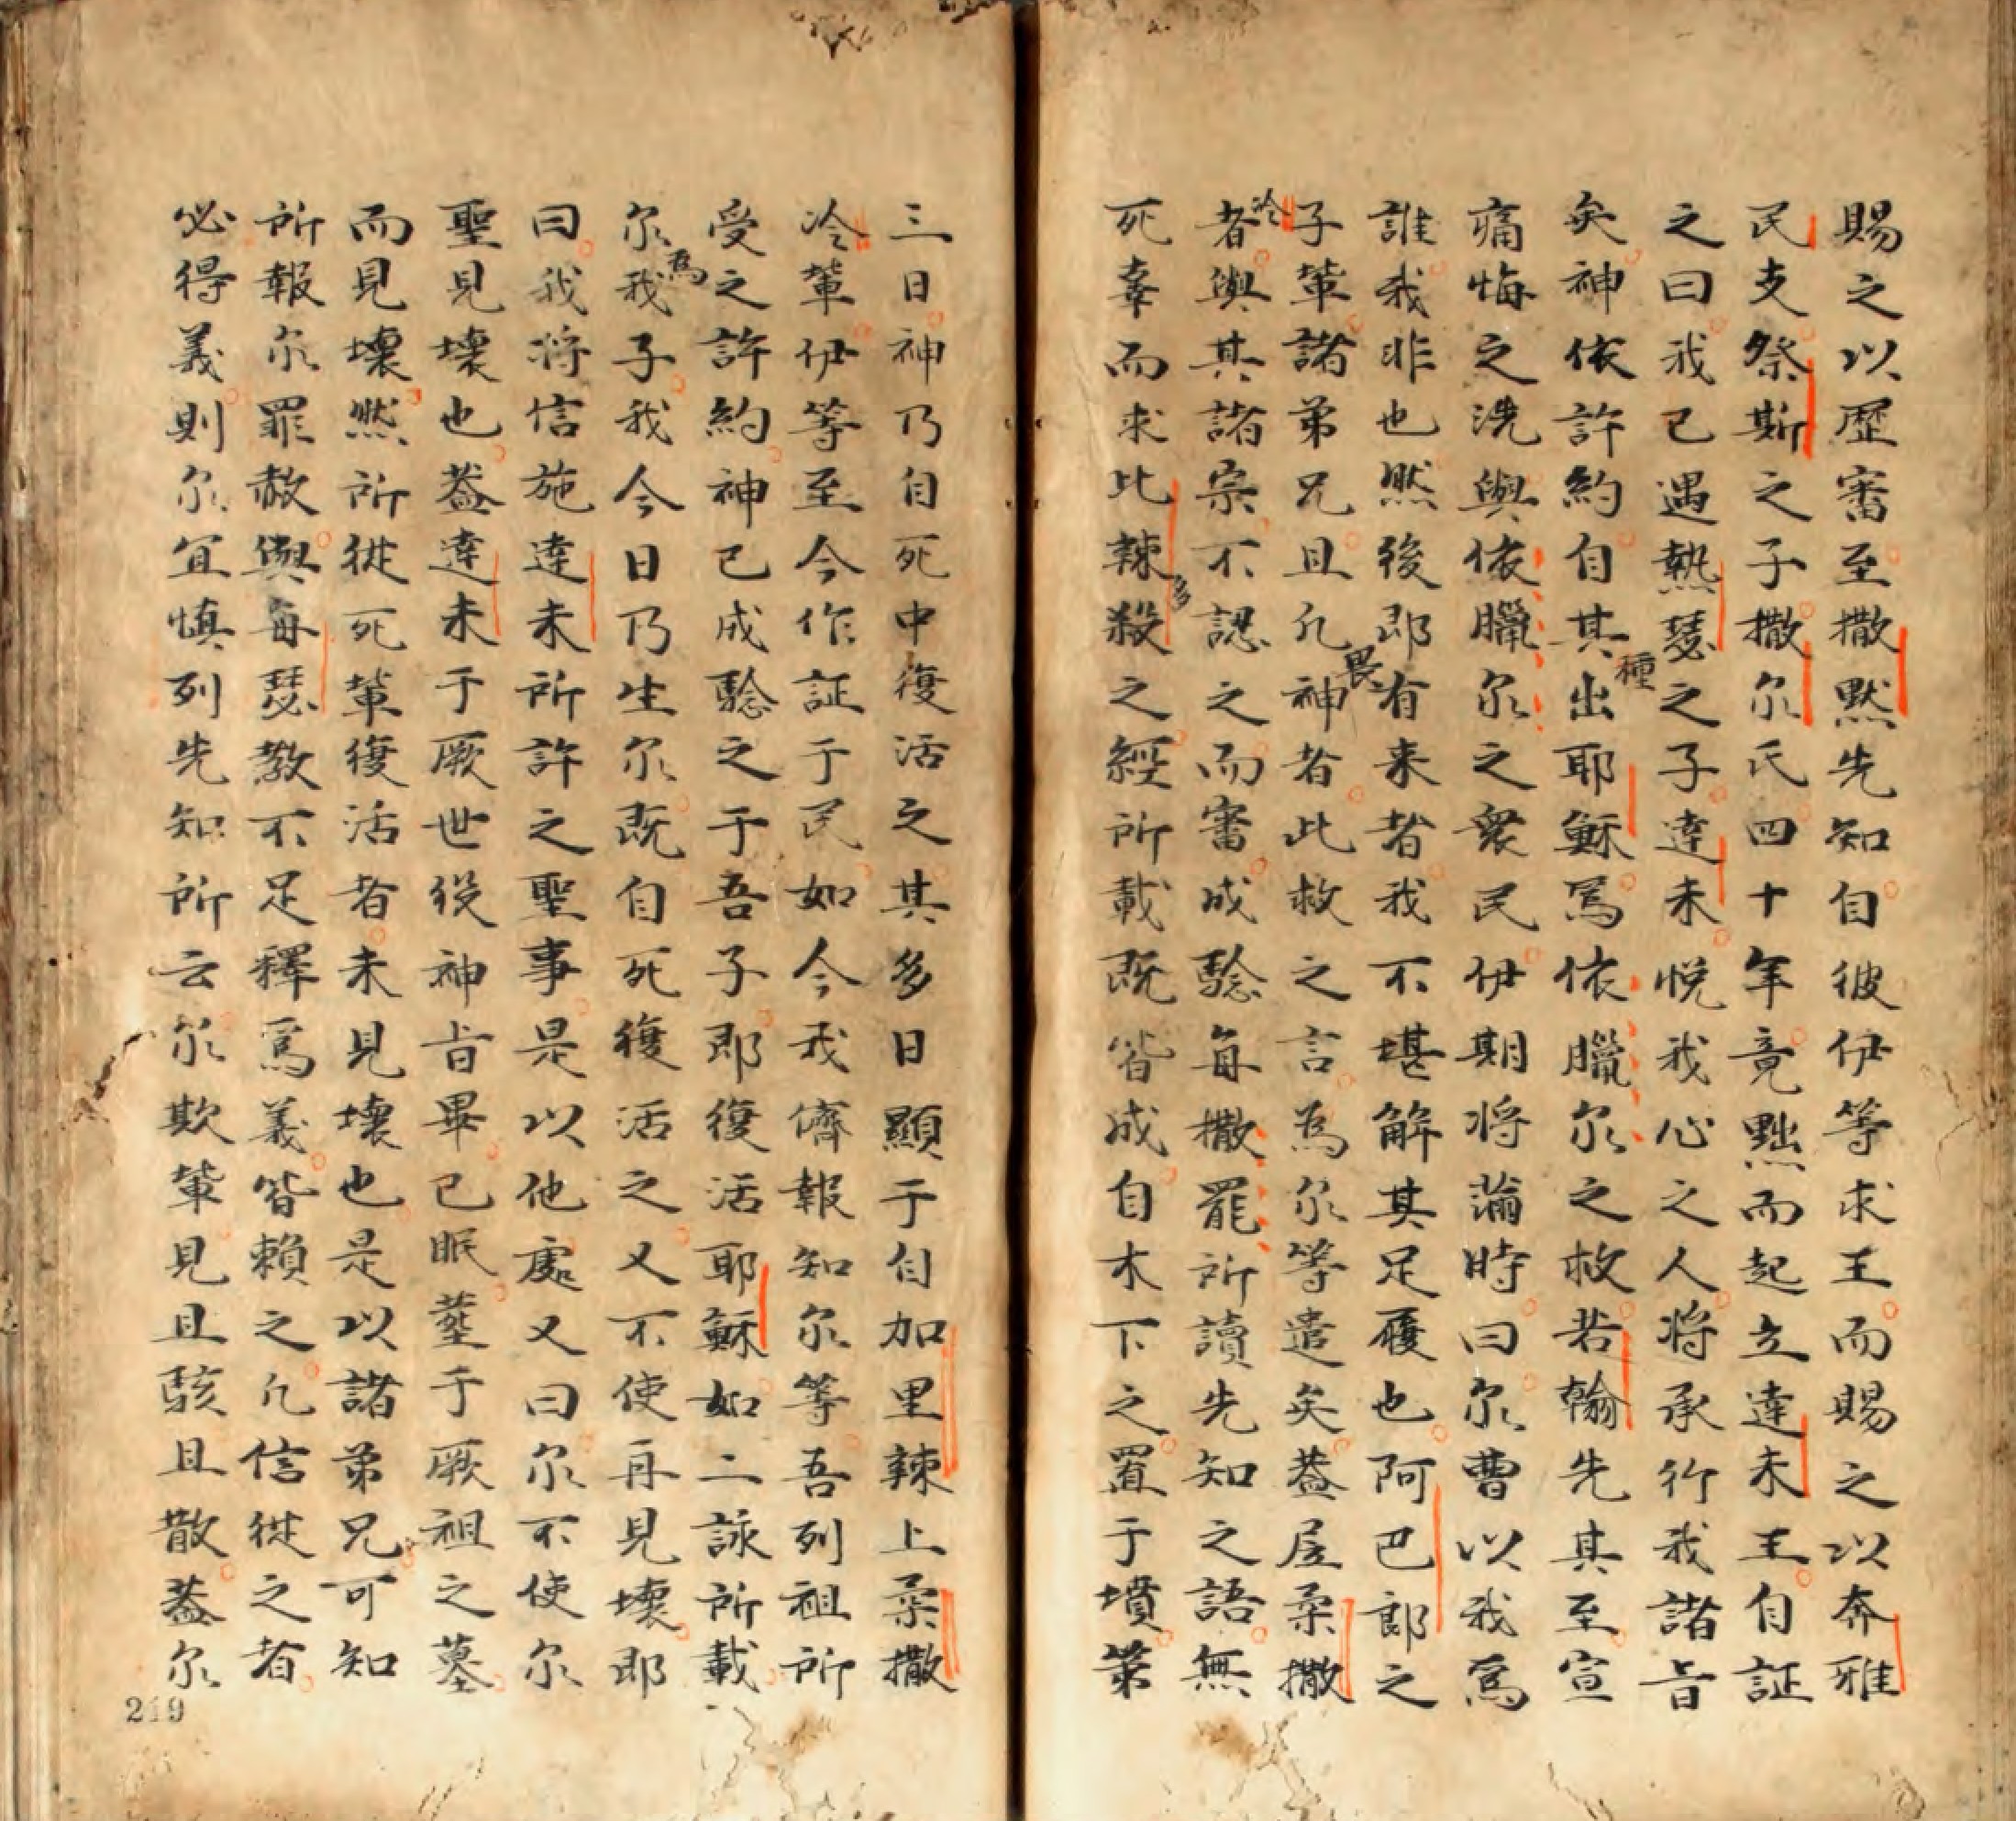 賜之以歷審至撒黙先知自彼伊等求王而賜之以奔雅
民支祭斯之子撒尔氏四十年竟黜而起立達未王自証
之曰我已遇熱瑟之子達未悦我心之人將承行我諸旨
矣神依許約自其種出耶穌爲依臘尔之救若翰先其至宣
痛悔之洗與依臘尔之衆民伊期將滿時曰尔曹以我爲
誰我非也然後即有来者我不堪解其足履也阿巴郎之
子輩諸弟兄且凡畏神者此救之言為尔等遣矣蓋居柔撒
冷者與其諸宗不認之而審成驗每撒罷所讀先知之語無
死辜而求比辣多殺之經所載既皆成自木下之置于墳第
三日神乃自死中復活之其多日顯于自加里辣上柔撒
冷輩伊等至今作証于民如今我儕報知尔等吾列祖所
受之許約神已成驗之于吾子即復活耶穌如二詠所載
尔為我子我今日乃生尔既自死復活之又不使再見壞即
曰我将信施達未所許之聖事是以他處又曰尔不使尔
聖見壞也蓋達未于厥世役神旨畢已眠塟于厥祖之墓
而見壞然所從死輩復活者未見壞也是以諸弟兄可知
所報尔罪赦與每瑟教不足釋爲義皆賴之凡信從之者
必得義則尔宜慎列先知所云尔欺輩見且駭且散蓋尔
219